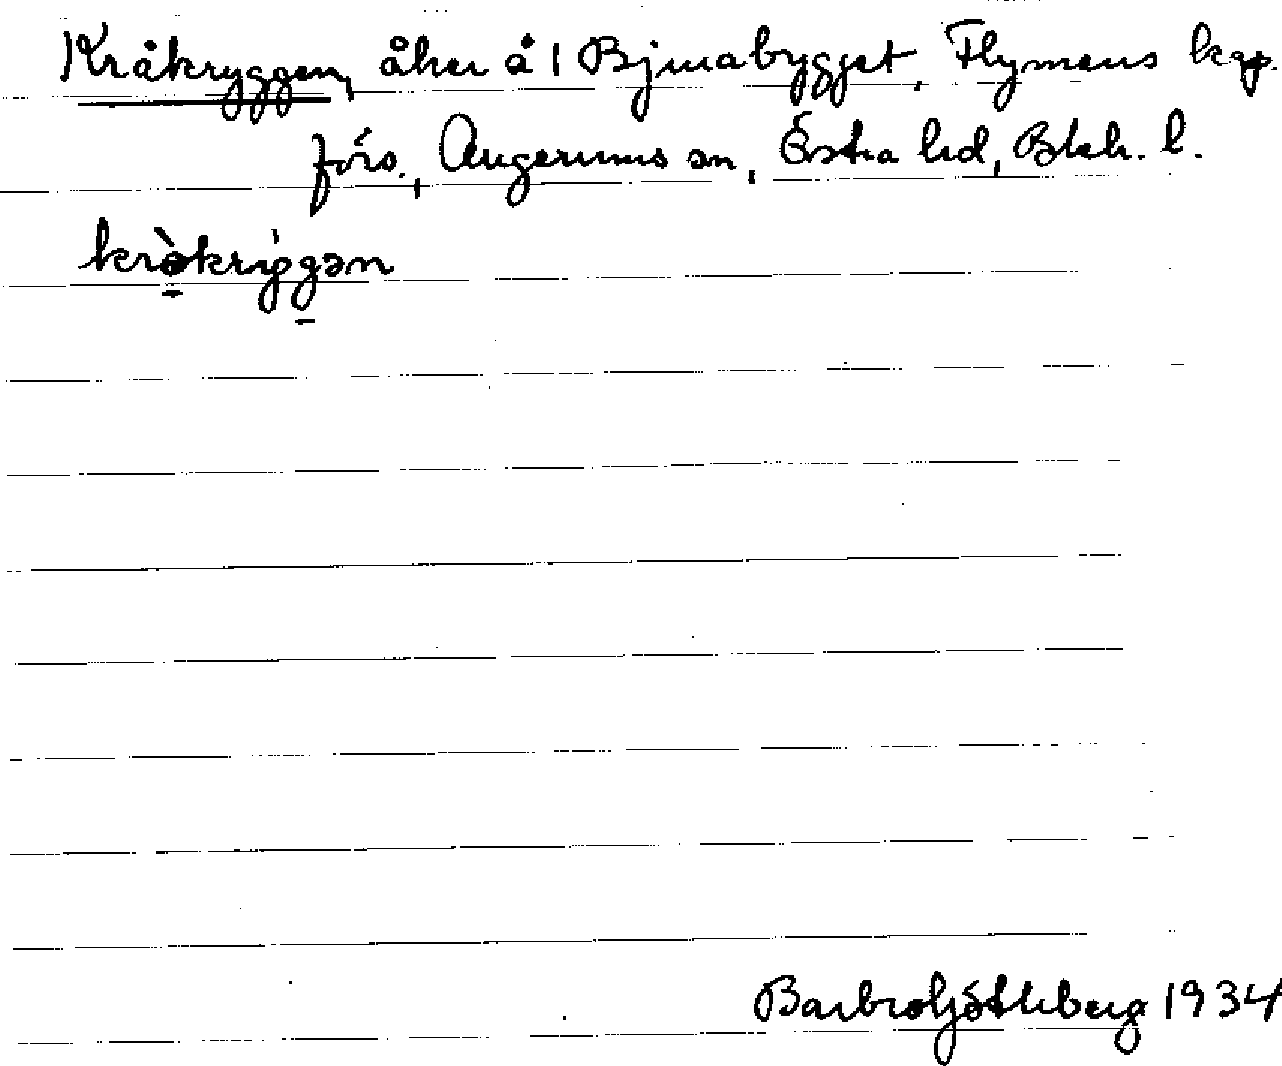 Kråkryggen, åker å 1 Bjurabygget, Flymens kap.
förs., Augerums sn, Östra hd, Blek. l.
kròkrýggən
Barbro Söderberg 1934